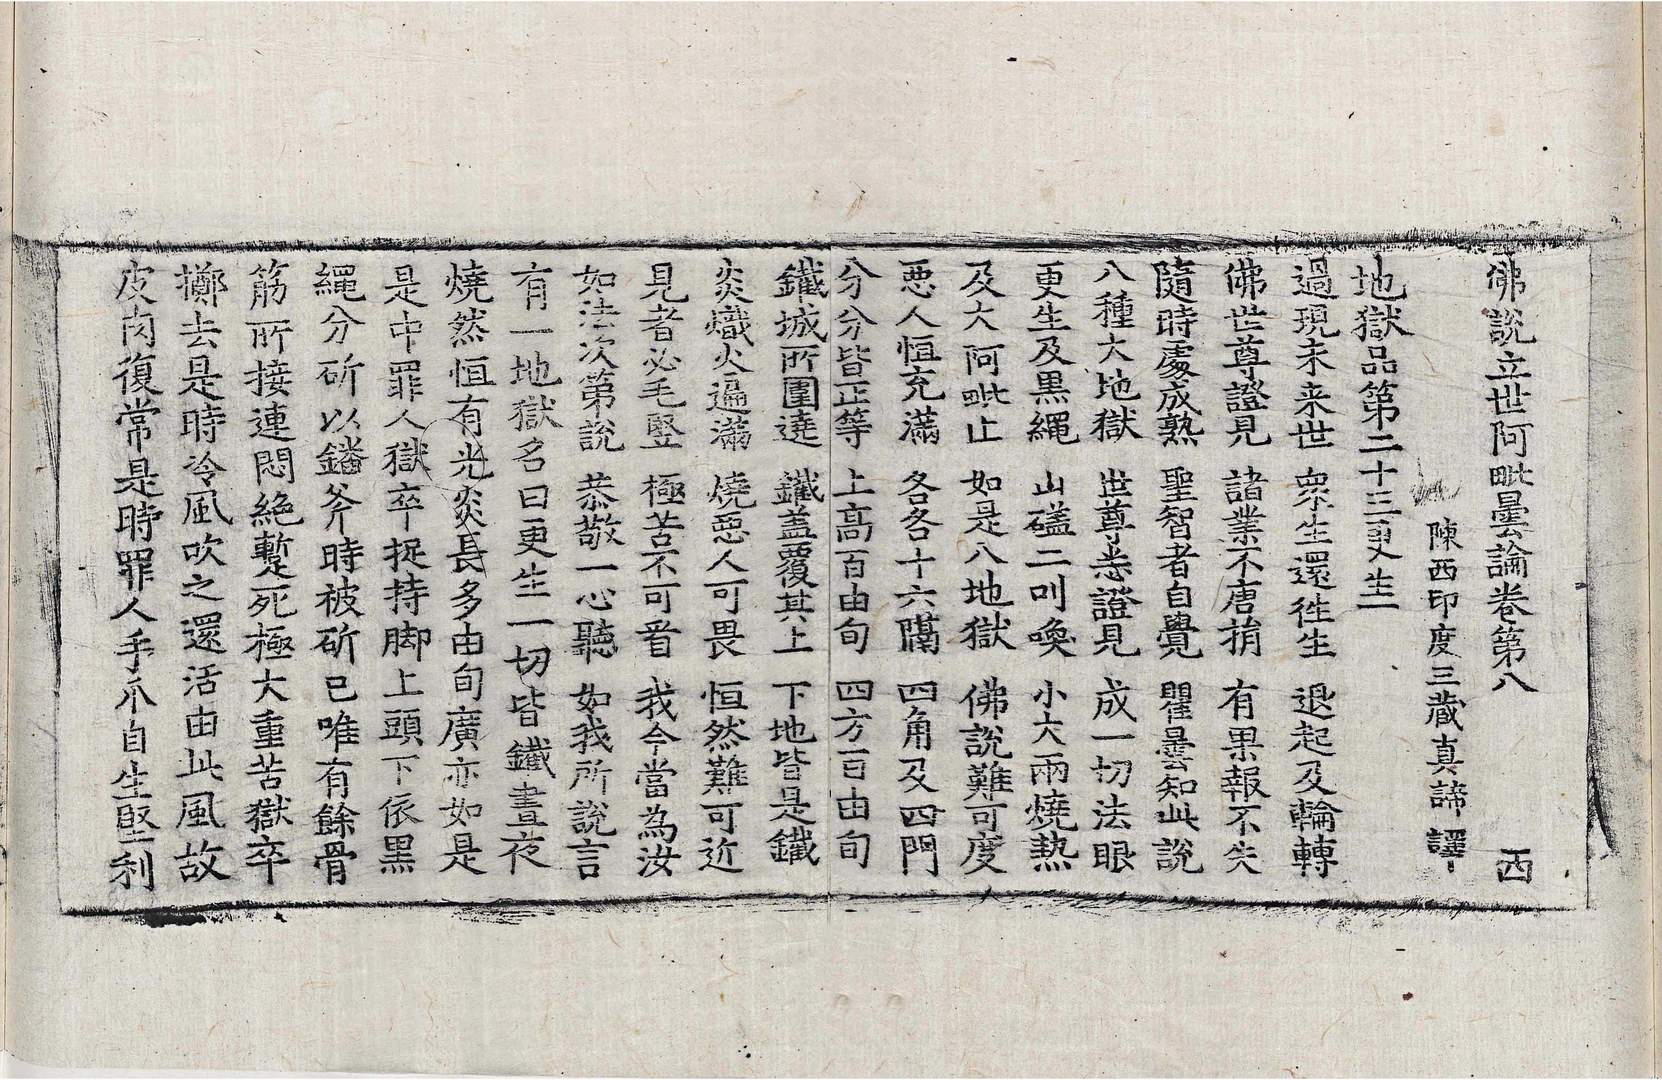 佛說立世阿毗曇論卷第八 西
陳西印度三藏真諦 譯
地獄品第二十三更生一
過現未来世 衆生還徃生 退起及輪轉
佛世尊證見 諸業不唐捐 有果報不失
隨時處成熟 聖智者自覺 瞿曇知此說
八種大地獄 世尊悉證見 成一切法眼
更生及黒繩 山磕二叫喚 小大兩燒熱
及大阿毗止 如是八地獄 佛說難可度
惡人恒充滿 各各十六隔 四角及四門
分分皆正等 上高百由旬 四方百由旬
鐵城所圍遶 鐵盖覆其上 下地皆是鐵
炎熾火遍滿 燒惡人可畏 恒然難可近
見者必毛竪 極苦不可看 我今當為汝
如法次第說 恭敬一心聽 如我所說言
有一地獄名曰更生一切皆鐵晝夜
燒然恒有光炎長多由旬廣亦如是
是中罪人獄卒捉持脚上頭下依黒
繩分斫以鐇斧時被斫已唯有餘骨
筋所接連悶絶暫死極大重苦獄卒
擲去是時冷風吹之還活由此風故
皮肉復常是時罪人手爪自生堅利